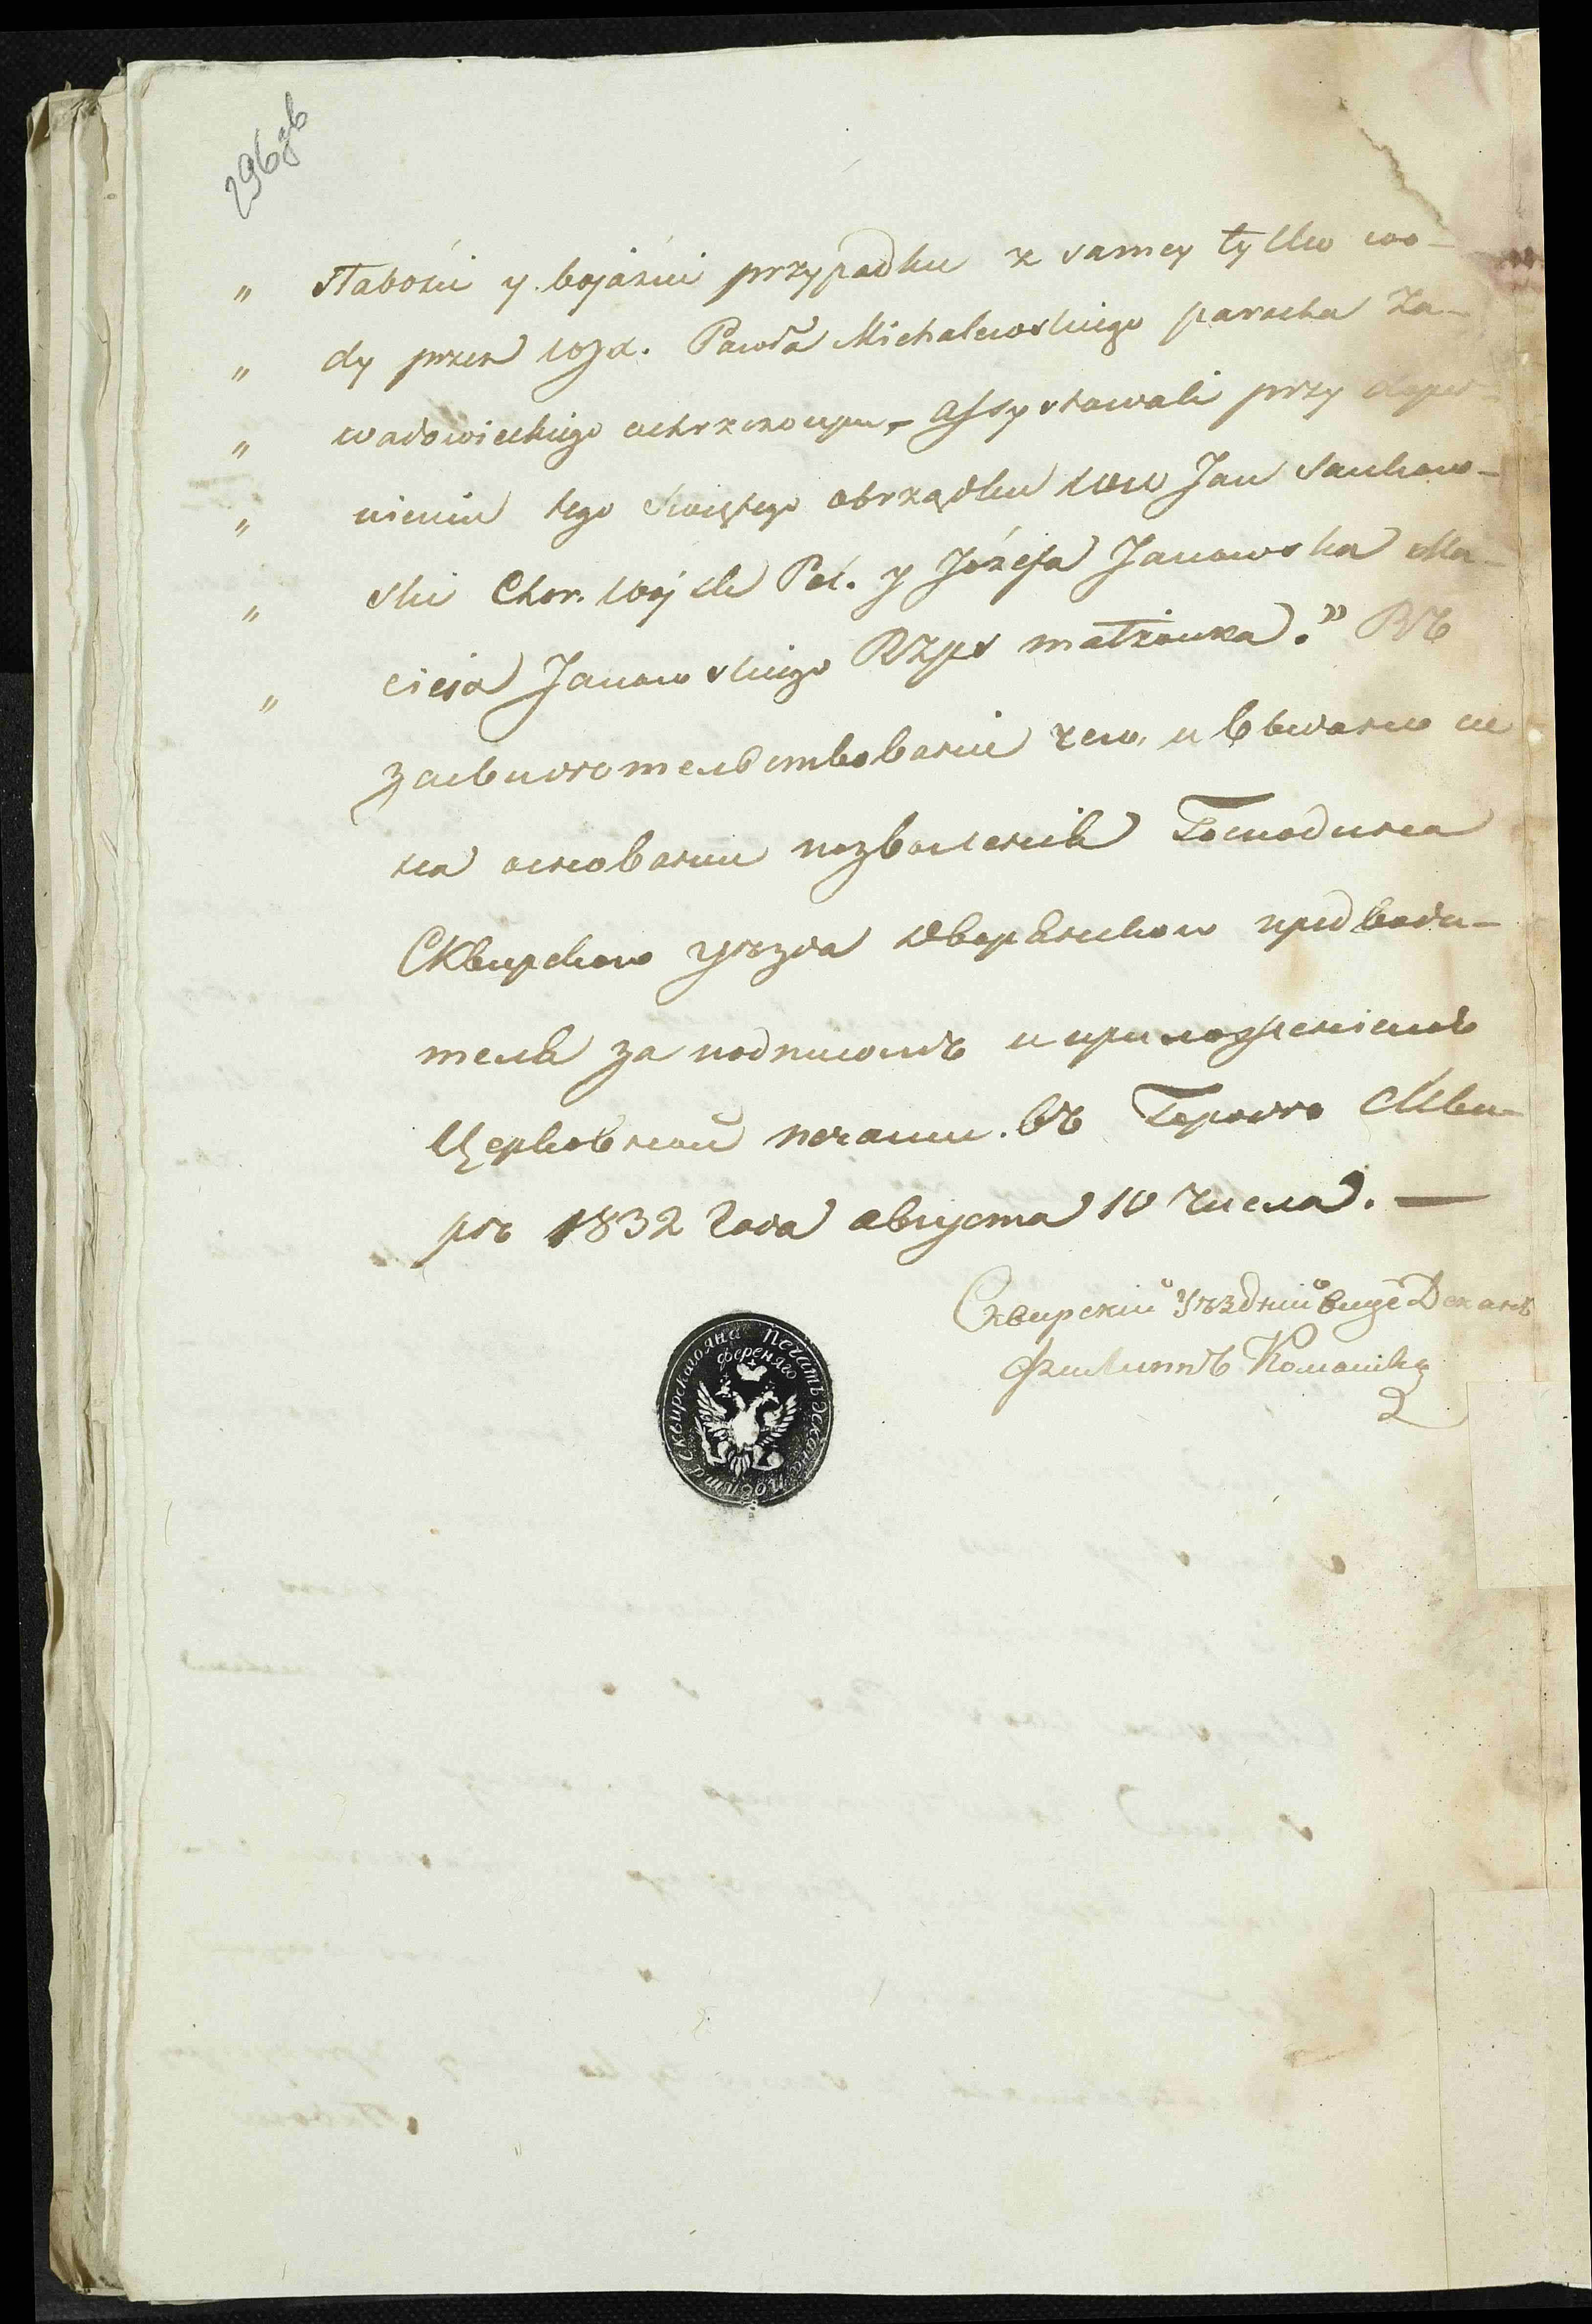 296 зв
„ słabości y bojaźni przypadku z samey tylko wo-
„ dy przez WJX. Pawła Michalewskiego parocha Za-
„ wadowieckiego ochrzczonym, assystowali przy dopeł-
„ nieniu tego świętego obrządku WW Jan Sankow-
„ ski Chor. Wojsk Pol. y Józefa Janowska Ma-
„ cieja Janowskiego małżonka." Въ
засвидѣтельствованіе чего, и выдано сіе
на основаніи позволенія Господина
Сквирскаго уѣзда дворянскаго предводи-
теля за подписомъ и приложеніемъ
Церковной печати. въ Городѣ Скви-
рѣ 1832 года августа 10 числа. —
Сквирскій Уѣздній вице Деканъ
Филиппъ
Печать
Сквирскаго